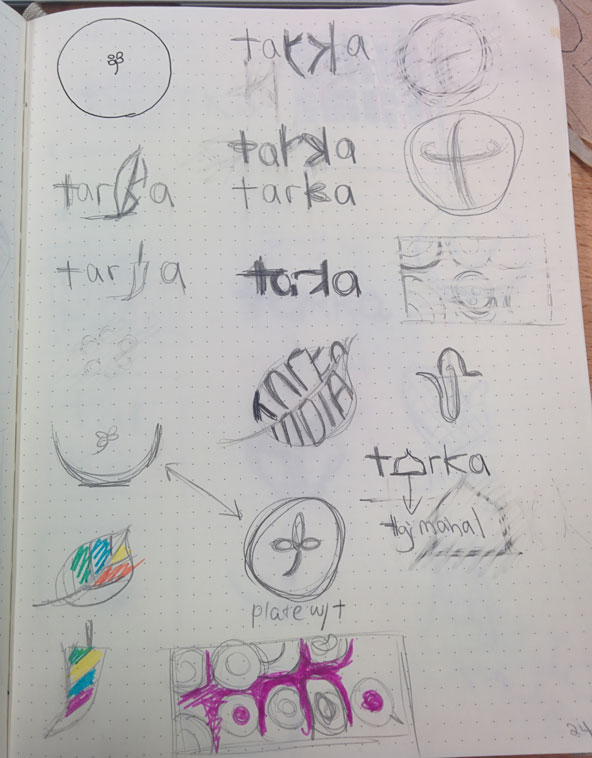 tarka
tarka
tarka
tarka
tarka
tarka
TARKA
INDIA
tarka
taj mahal
plate w/ t
tarka
24